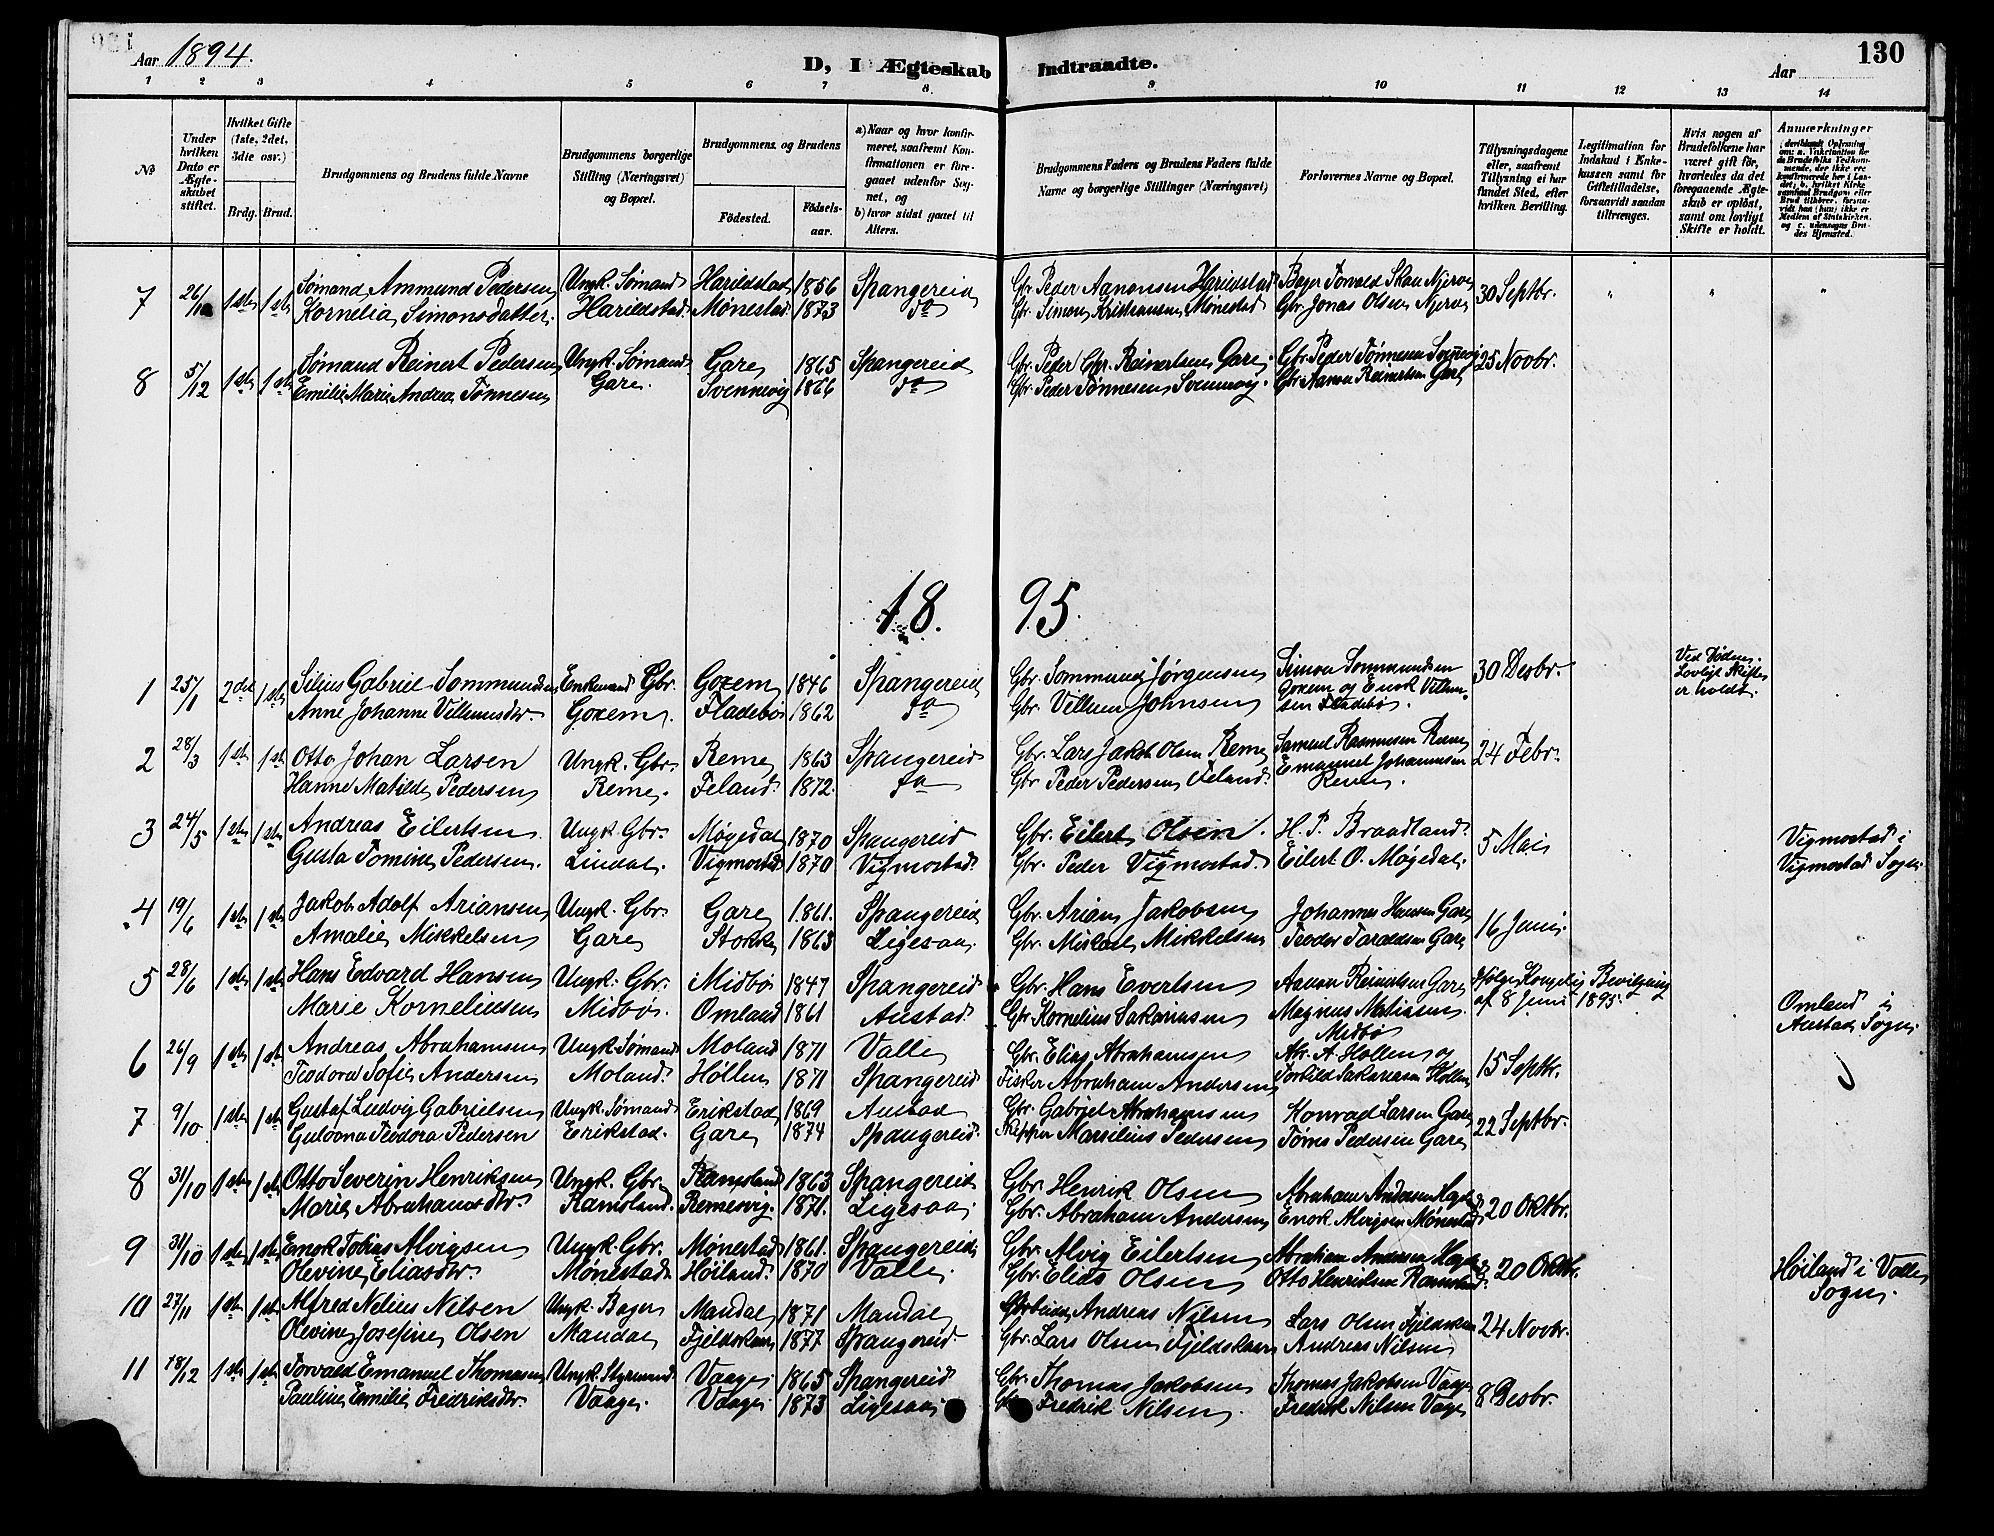 Aar 1894.
D, I Ægteskab Indtraadte.
Aar
130
1 2 3 4 5 6 7 8. 9 10 11 12 13 14
No
Under hvilken Dato er Ægteskabet stiftet.
Hvilket Gifte (1ste, 2det, 3die osv.)
Brdg. Brud.
Brudgommens og Brudens fulde Navne
Brudgommens borgerlige Stilling (Næringsvei) og Bopæl.
Brudgommens og Brudens
Födested.
Födselsaar.
a) Naar og hvor konfirmeret, saafremt Konfirmationen er foregaaet udenfor Sognet, og
b) hvor sidst gaaet til Alters.
Brudgommens Faders og Brudens Faders fulde Navne og borgerlige Stillinger (Næringsvei)
Forlovernes Navne og Bopæl.
Tillysningsdagene eller, saafremt Tillysning ei har fundet Sted, efter hvilken Bevilling.
Legitimation for Indskud i Enkekassen samt for Giftetilladelse, forsaavidt saadan tiltrænges.
Hvis nogen af Brudefolkene har været gift før, hvorledes da det foregaaende Ægteskab er opløst, samt om lovligt Skifte er holdt.
Anmærkninger
7 26/10 1ste 1ste Sømand Ammund Pedersen Ungk. Sømand Harildstad 1856 Spangereid Gbr. Peder Aanonsen Harildstad Bager Torvald Skau Njerve 30 Septbr. " " "
Kornelia Simonsdatter. Harildstad. Mønestad. 1873 do Gbr. Simon Kristiansen Mønestad Gbr Jonas Olsen Njerve
8 5/12 1ste 1ste Sømand Reinert Pedersen Ungk. Sømand Gare 1865 Spangereid Gbr. Peder Chr. Reinertsen Gare. Gbr. Peder Tønnesen Svennevig 25 Novbr.
Emilie Marie Andrea Tønnesen Gare. Svennevig 1866 do Gbr. Peder Tønnesen Svennevig. Gbr. Aanon Reinertsen Gare
18 95.
1 25/1 2det 1ste Silius Gabriel Sommundsen Enkemand Gbr. Goxem 1846 Spangereid Gbr. Sommund Jørgensen Simon Sommundsen Goxem og Enok Villumsen Fladebø. 30 Desbr. Ved Døden. Lovligt Skifte er holdt.
Anne Johanne Villumsdtr. Goxem. Fladebø 1862 do Gbr. Villum Johnsen
2 28/3 1ste 1ste Otto Johan Larsen Ungk. Gbr. Reme 1863 Spangereid Gbr. Lars Jakob Olsen Reme Samuel Rasmussen Reme 24 Febr.
Hanne Matilde Pedersen Reme. Feland. 1872. do Gbr Peder Pedersen Feland. Emanuel Johannesen Reme.
3 24/5 1ste 1ste Andreas Eilertsen Ungk. Gbr. Møgedal 1870 Spangereid Gbr. Eilert Olsen. H. P. Braadland. 5 Mai Vigmostad i
Gusta Tomine Pedersen. Lindal. Vigmostad 1870 Vigmostad. Gbr. Peder Vigmostad. Eilert O. Møgedal. Vigmostad Sogn
4 19/6 1ste 1ste Jakob Adolf Ariansen Ungk. Gbr. Gare 1861. Spangereid Gbr. Arian Jakobsen Johannes Hansen Gare 16 Juni.
Amalie Mikkelsen Gare Stokke 1863 Ligesaa. Gbr. Mikael Mikkelsen Teodor Taraldsen Gare
5 28/6 1ste 1ste Hans Edvard Hansen Ungk. Gbr. Midbø 1847 Spangereid Gbr. Hans Evertsen Aanon Reinertsen Gare Ifølge Kongelig Bevilgning af 8 Juni 1895. Omland i
Marie Korneliusen Midbø. Omland 1861 Austad. Gbr Kornelius Sakariasen Magnus Matiasen Midbø Austad Sogn.
6 26/9 1ste 1ste Andreas Abrahamsen Ungk. Sømand Moland 1871 Valle Gbr. Elias Abrahamsen Abr. A. Hollen og 15 Septbr.
Teodora Sofie Andersen Moland. Høllen 1871 Spangereid Fisker Abraham Andersen Torkild Sakariasen Høllen
7 9/10 1ste 1ste Gustaf Ludvig Gabrielsen Ungk. Sømand Erikstad 1869 Austad Gbr. Gabriel Abrahamsen Konrad Larsen Gare 22 Septbr.
Gulovna Teodora Pedersen Erikstad. Gare 1874 Spangereid. Skipper Marselius Pedersen Tørres Pedersen Gare
8 31/10 1ste 1ste Otto Severin Henriksen Ungk. Gbr. Ramsland 1863 Spangereid Gbr. Henrik Olsen Abraham Andersen 20 Oktbr.
Marie Abrahamsdtr. Ramsland. Remesvig. 1871. Ligesaa. Gbr. Abraham Andersen Enok Alvigsen Mønestad
9 31/10 1ste 1ste Enok Tobias Alvigsen Ungk. Gbr. Mønestad 1861. Spangereid Gbr. Alvig Eilertsen Abraham Andersen 20 Oktbr. Høiland i Valle
Olevine Eliasdtr. Mønestad Høiland. 1870 Valle. Gbr. Elias Olsen Otto Henriksen Ramsland. Sogn.
10 27/11 1ste 1ste Alfred Nelius Nilsen Ungk. Bager Mandal 1871 Mandal Arbeider Andreas Nilsen Lars Olsen Fjeldskaar 24 Novbr.
Olevine Josefine Olsen Mandal Fjeldskaar 1877 Spangereid. Gbr. Lars Olsen Fjeldskaar Andreas Nilsen
11 18/12 1ste 1ste Torvald Emanuel Thomasen Ungk. Styrmand Vaage 1865 Spangereid Gbr. Thomas Jakobsen Thomas Jakobsen Vaage 8 Desbr.
Pauline Emilie Fredriksdtr. Vaage. Vaage 1873 Ligesaa. Gbr. Fredrik Nilsen. Fredrik Nilsen Vaage